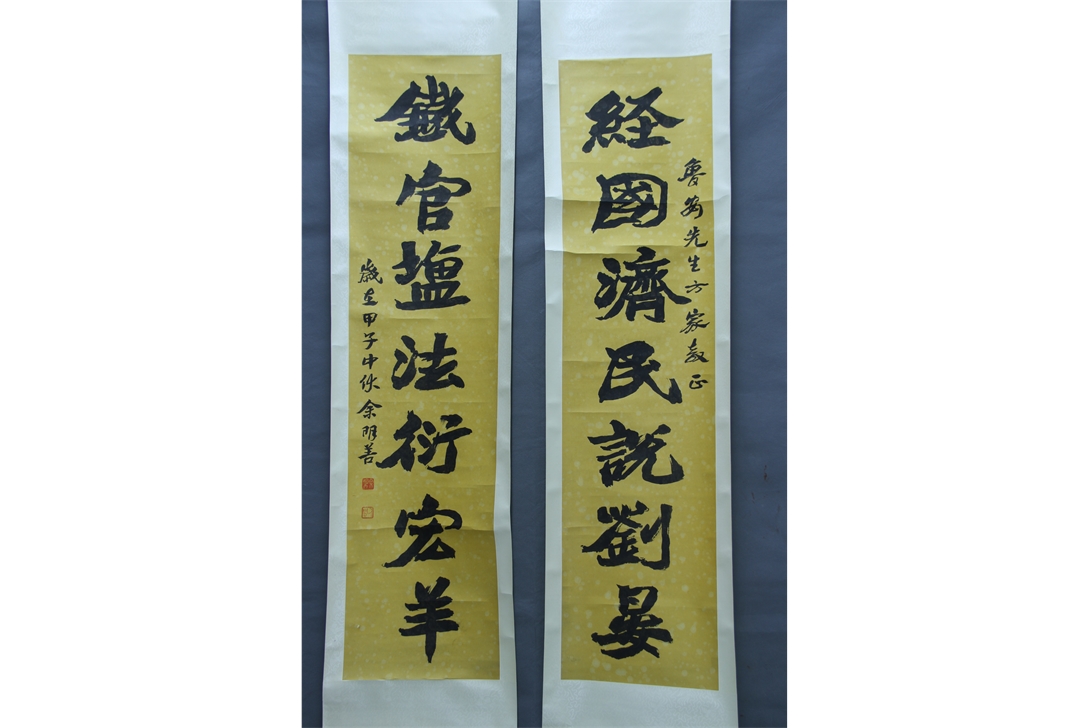 魯 先生方家教正
経國濟民説劉晏
鐵官塩法衍宏羊
歲在甲子中秋余明善